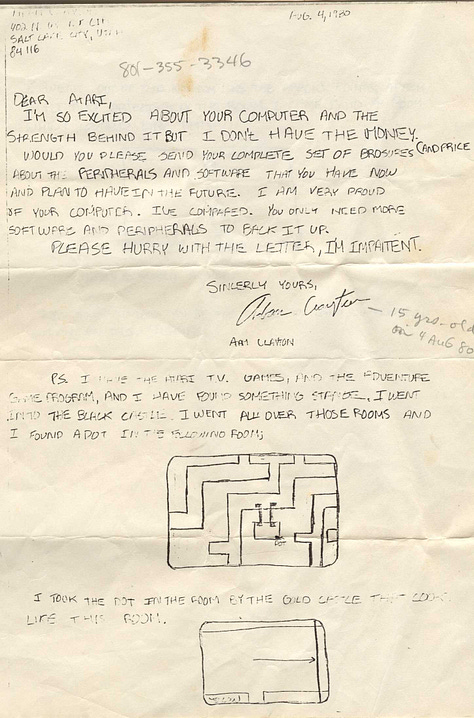 AUG. 4, 1980
SALT LAKE CITY, UTAH
84116
801-355-3346
DEAR ATARI,
I'M SO EXCITED ABOUT YOUR COMPUTER AND THE
STRENGTH BEHIND IT BUT I DON'T HAVE THE MONEY.
WOULD YOU PLEASE SEND YOUR COMPLETE SET OF BROSURES (AND PRICE
ABOUT THE PERIPHERALS AND SOFTWARE THAT YOU HAVE NOW
AND PLAN TO HAVE IN THE FUTURE. I AM VERY PROUD
OF YOUR COMPUTER. I'VE COMPARED. YOU ONLY NEED MORE
SOFTWARE AND PERIPHERALS TO BACK IT UP.
PLEASE HURRY WITH THE LETTER, I'M IMPAITENT.
SINCERLY YOURS,
15 yrs-old
on 4 Aug 80
CLAYTON
PS. I HAVE THE ATARI T.V. GAMES, AND THE ADVENTURE
GAME PROGRAM, AND I HAVE FOUND SOMETHING STANGE. I WENT
INTO THE BLACK CASTLE. I WENT ALL OVER THOSE ROOMS AND
I FOUND A DOT IN THE FOLLOWING ROOM;
DOT
I TOOK THE DOT IN THE ROOM BY THE GOLD CASTLE THAT LOOKS
LIKE THIS ROOM.